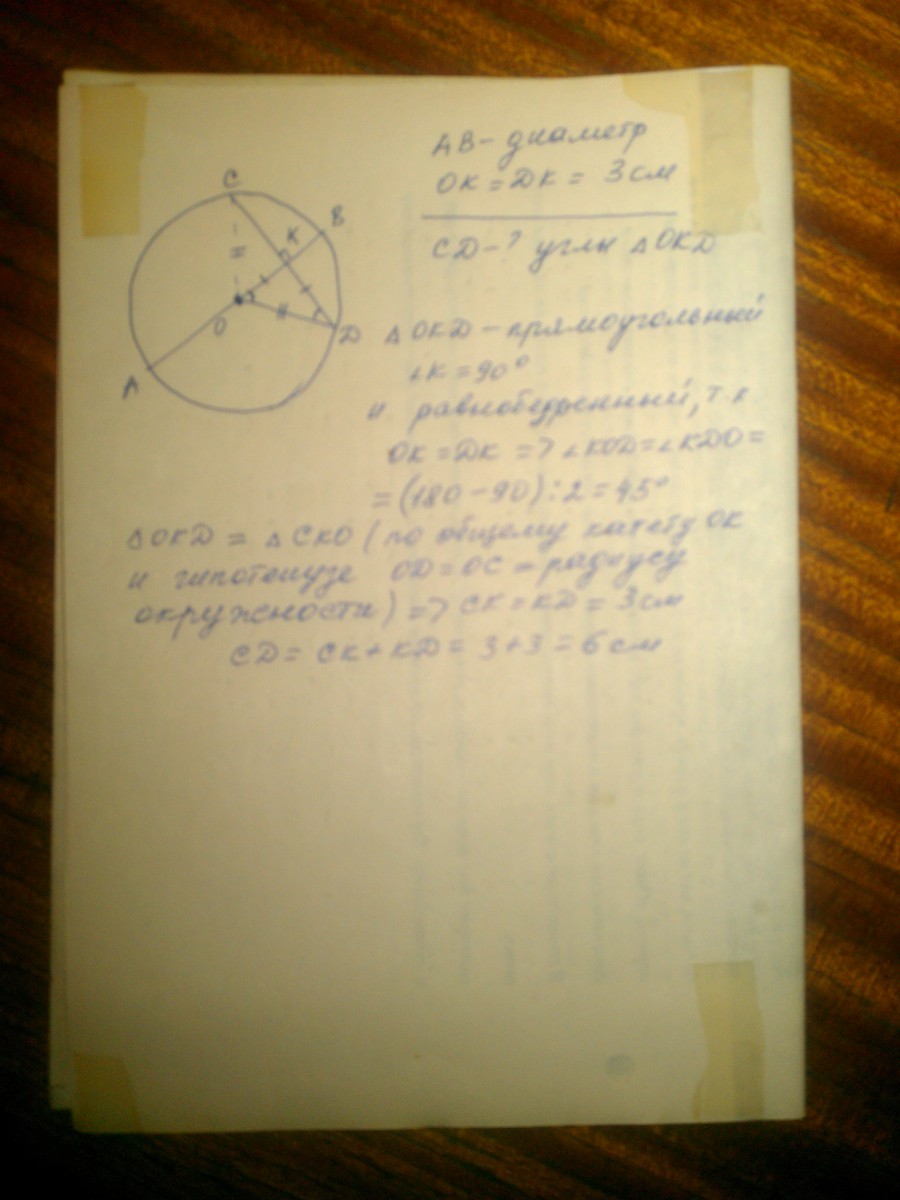 AB - диаметр
OK = DK = 3 см
CD - ? углы △OKD
C
B
K
O
D
A
△OKD - прямоугольный
∠K = 90°
и равнобедренный, т.к
OK = DK => ∠KOD = ∠KDO =
= (180 - 90) : 2 = 45°
△OKD = △CKO (по общему катету OK
и гипотенузе OD = OC = радиусу
окружности) => CK = KD = 3 см
CD = CK + KD = 3 + 3 = 6 см